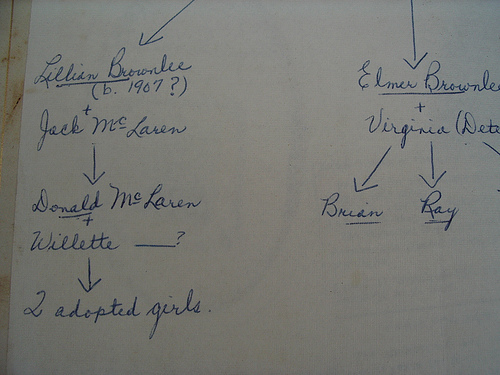 Lillian Brownlee
(b. 1907?)
+
Jack McLaren
Donald McLaren
+
Willette ___?
2 adopted girls.
Elmer Brownlee
+
Virginia (Dete
Brian
Ray